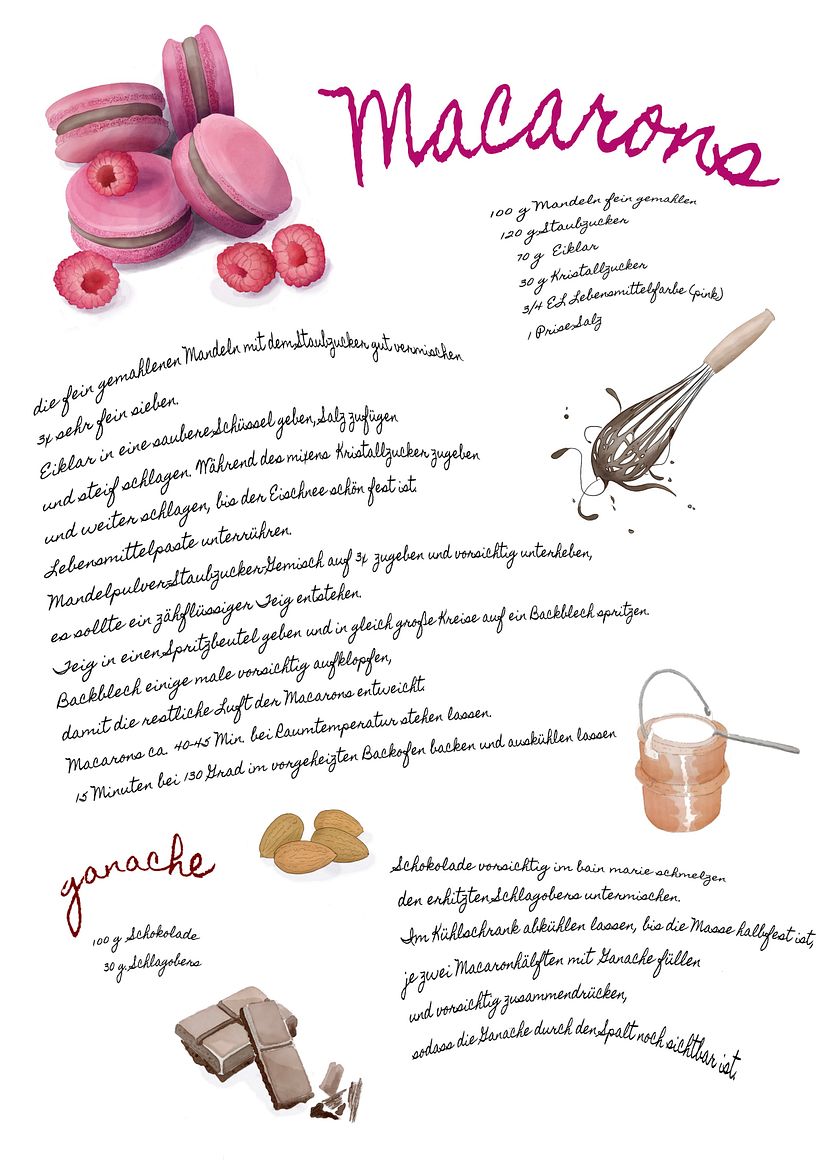 Macarons
100 g Mandeln fein gemahlen
120 g Staubzucker
70 g Eiklar
30 g Kristallzucker
3/4 EL Lebensmittelfarbe (pink)
1 Prise Salz
die fein gemahlenen Mandeln mit dem Staubzucker gut vermischen
3x sehr fein sieben.
Eiklar in eine saubere Schüssel geben, Salz zufügen
und steif schlagen. Während des mixens Kristallzucker zugeben
und weiter schlagen, bis der Eischnee schön fest ist.
Lebensmittelpaste unterrühren.
Mandelpulver-Staubzucker-Gemisch auf 3x zugeben und vorsichtig unterheben,
es sollte ein zähflüssiger Teig entstehen.
Teig in einen Spritzbeutel geben und in gleich große Kreise auf ein Backblech spritzen.
Backblech einige male vorsichtig aufklopfen,
damit die restliche Luft der Macarons entweicht.
Macarons ca. 40-45 Min. bei Raumtemperatur stehen lassen.
15 Minuten bei 130 Grad im vorgeheizten Backofen backen und auskühlen lassen
ganache
100 g Schokolade
30 g Schlagobers
Schokolade vorsichtig im bain marie schmelzen
den erhitzten Schlagobers untermischen.
Im Kühlschrank abkühlen lassen, bis die Masse halbfest ist,
je zwei Macaronhälften mit Ganache füllen
und vorsichtig zusammendrücken,
sodass die Ganache durch den Spalt noch sichtbar ist.